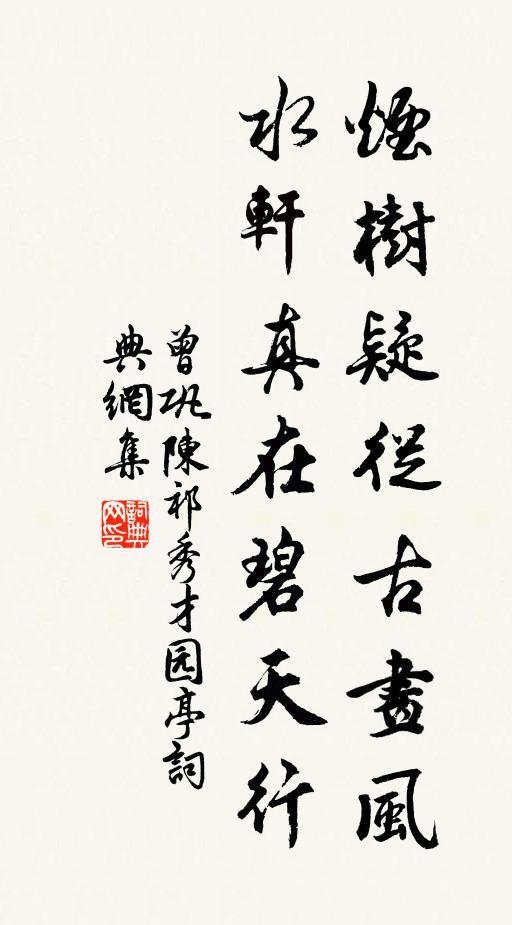 煙樹疑從古畫風
水軒真在碧天行
曾巩陳祁秀才园亭詞
典網集
詞典
网印